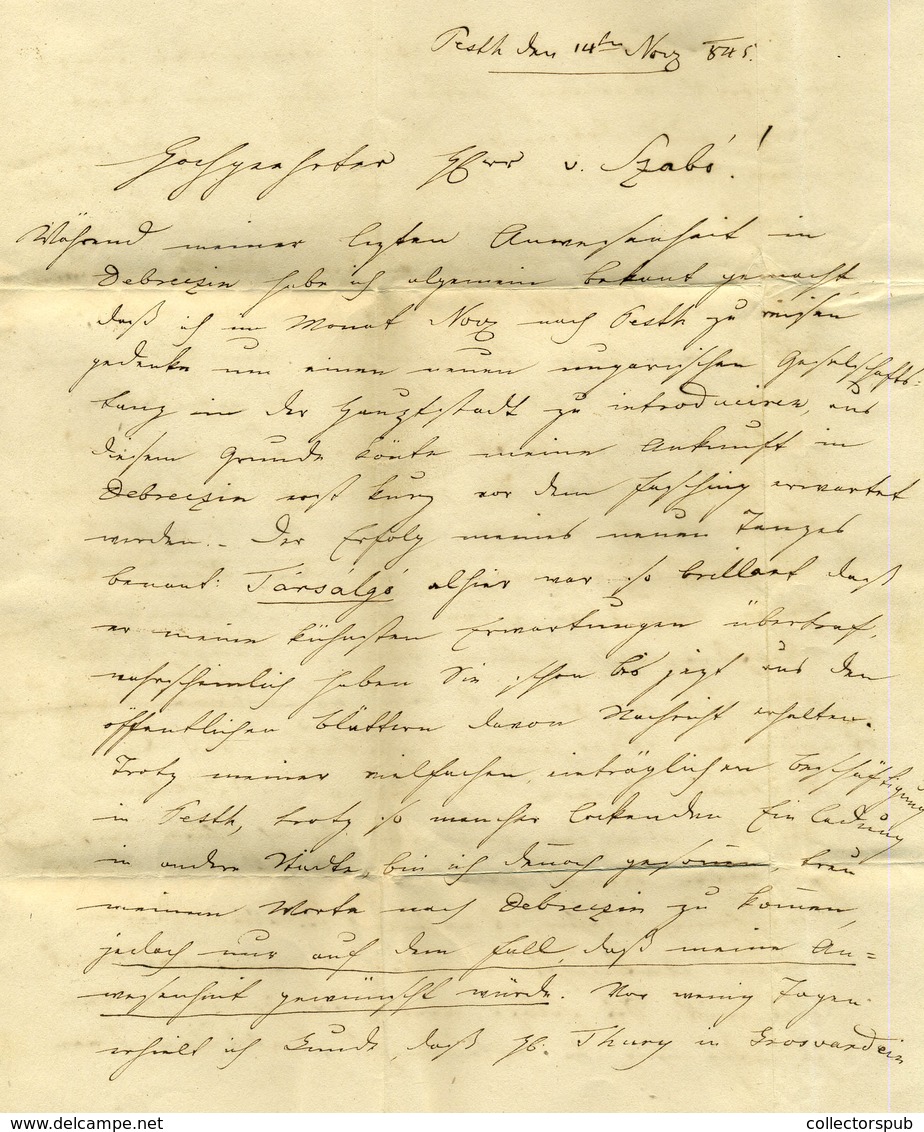 Pesth den 14ten Nov 845.
Hochgeehrter Herr v. Szabó!
Während meiner lezten Anwesenheit in
Debreczin habe ich algemein bekant gemacht,
daß ich im Monat Nov nach Pesth zu reisen
gedenke um einen neuen ungarischen Geselschafts-
tanz in der Hauptstadt zu introduciren, aus
diesem Grunde könte meine Ankunft in
Debreczin erst kurz vor dem Fasching erwartet
werden. – Der Erfolg meines neuen Tanzes
benant: Társalgó alhier war so brillant daß
er meine kühnsten Erwartungen übertraf,
wahrscheinlich haben Sie schon bis jezt aus den
öffentlichen Blättern davon Nachricht erhalten.
Trotz meiner vielfachen, einträglichen Beschäftigung
in Pesth, trotz so mancher lockenden Einladung
in andere Städte, bin ich denoch gesonen, treu
meinem Worte nach Debreczin zu komen,
jedoch nur auf dem Fall, daß meine An=
wesenheit gewünscht würde. Vor wenig Tagen
erhielt ich Kunde, daß H. Thury in Grosvardein
collectorspub